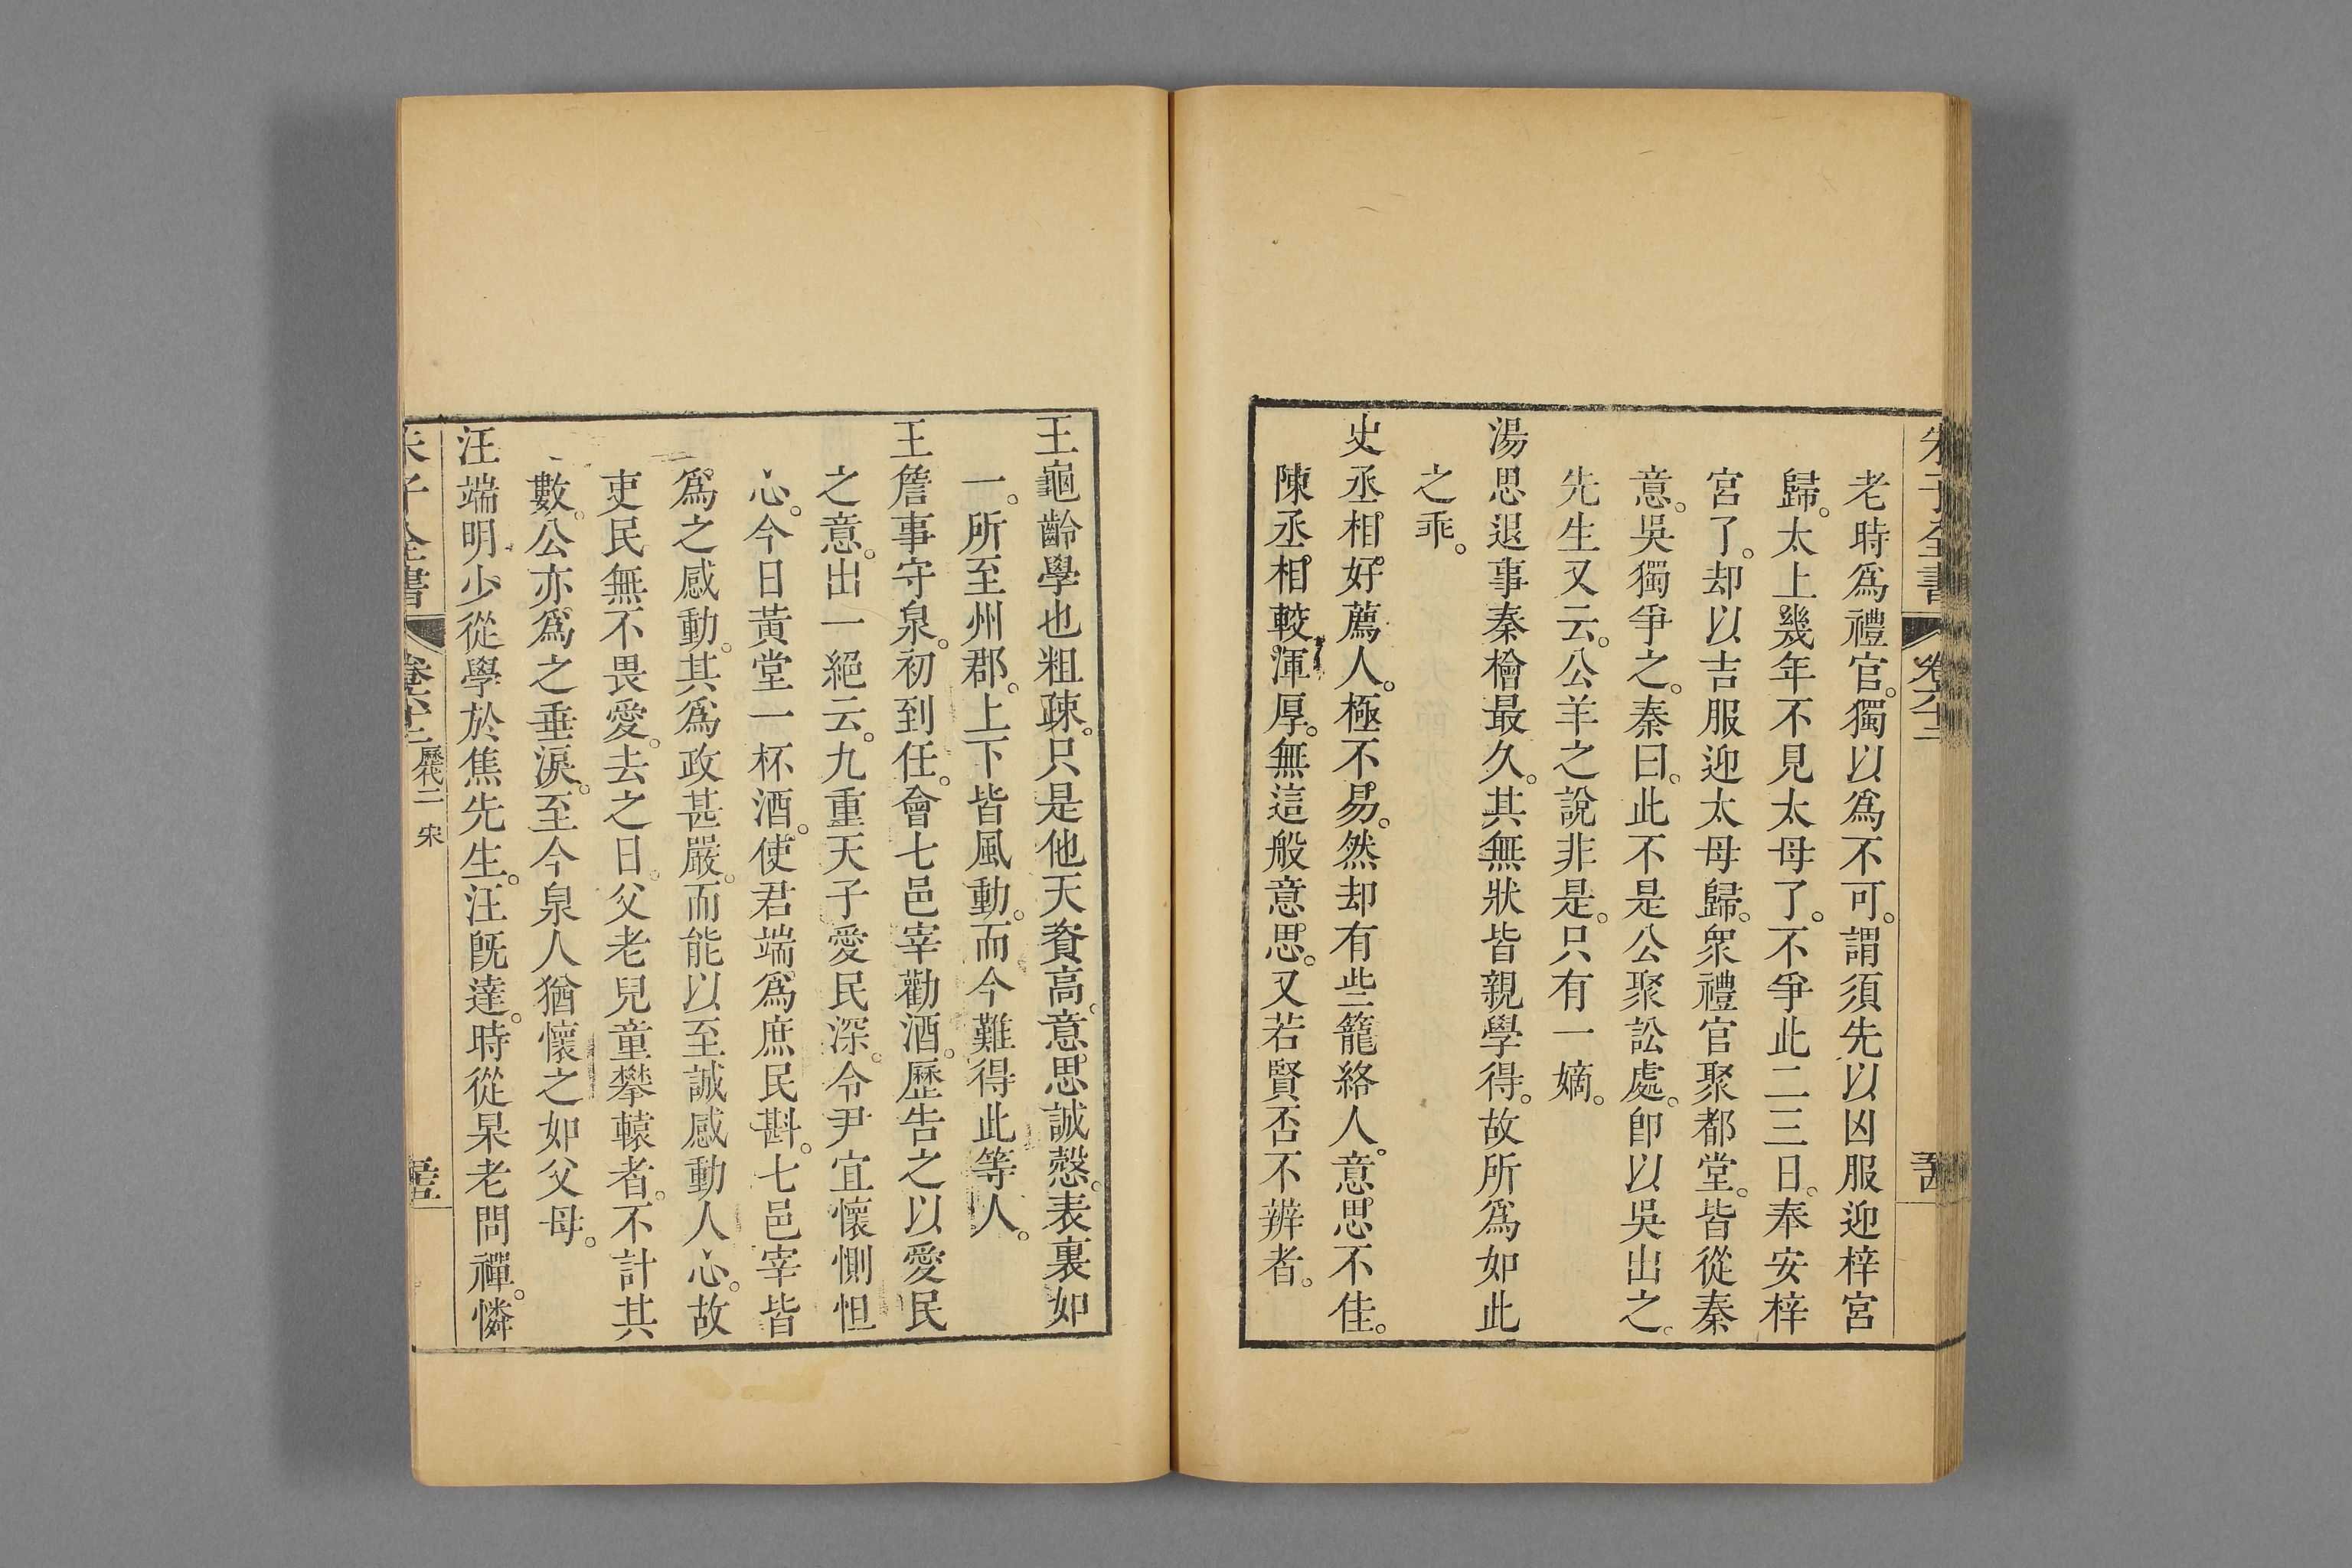 朱子全書 卷六十三
老時爲禮官。獨以爲不可。謂須先以凶服迎梓宮
歸。太上幾年不見太母了。不爭此二三日。奉安梓
宮了。却以吉服迎太母歸。衆禮官聚都堂。皆從秦
意。吳獨爭之。秦曰。此不是公聚訟處。卽以吳出之。
先生又云。公羊之說非是。只有一嫡。
湯思退事秦檜最久。其無狀皆親學得。故所爲如此
之乖。
史丞相好薦人。極不易。然却有些籠絡人。意思不佳。
陳丞相較渾厚。無這般意思。又若賢否不辨者。
王龜齡學也粗疎。只是他天資高。意思誠慤。表裏如
一。所至州郡。上下皆風動。而今難得此等人。
王詹事守泉。初到任。會七邑宰勸酒。歷告之以愛民
之意。出一絕云。九重天子愛民深。令尹宜懷惻怛
心。今日黃堂一杯酒。使君端爲庶民斟。七邑宰皆
爲之感動。其爲政甚嚴。而能以至誠感動人心。故
吏民無不畏愛。去之日。父老兒童攀轅者。不計其
數。公亦爲之垂淚。至今泉人猶懷之如父母。
汪端明。少從學於焦先生。汪旣達。時從杲老問禪。憐
朱子全書 卷六十三 歷代二 宋